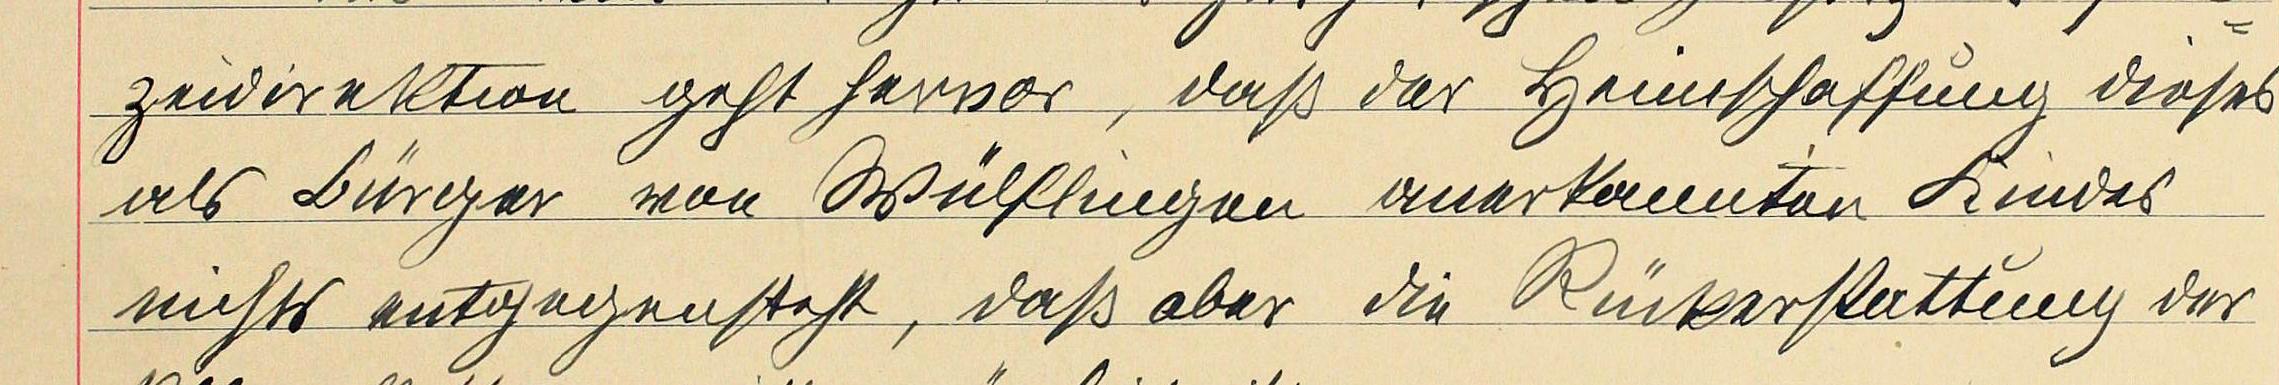 zeidirektion geht hervor, daß der Heimschaffung dieses
als Bürger von Wülflingen anerkannten Kindes
nichts entgegensteht, daß aber die Rückerstattung der